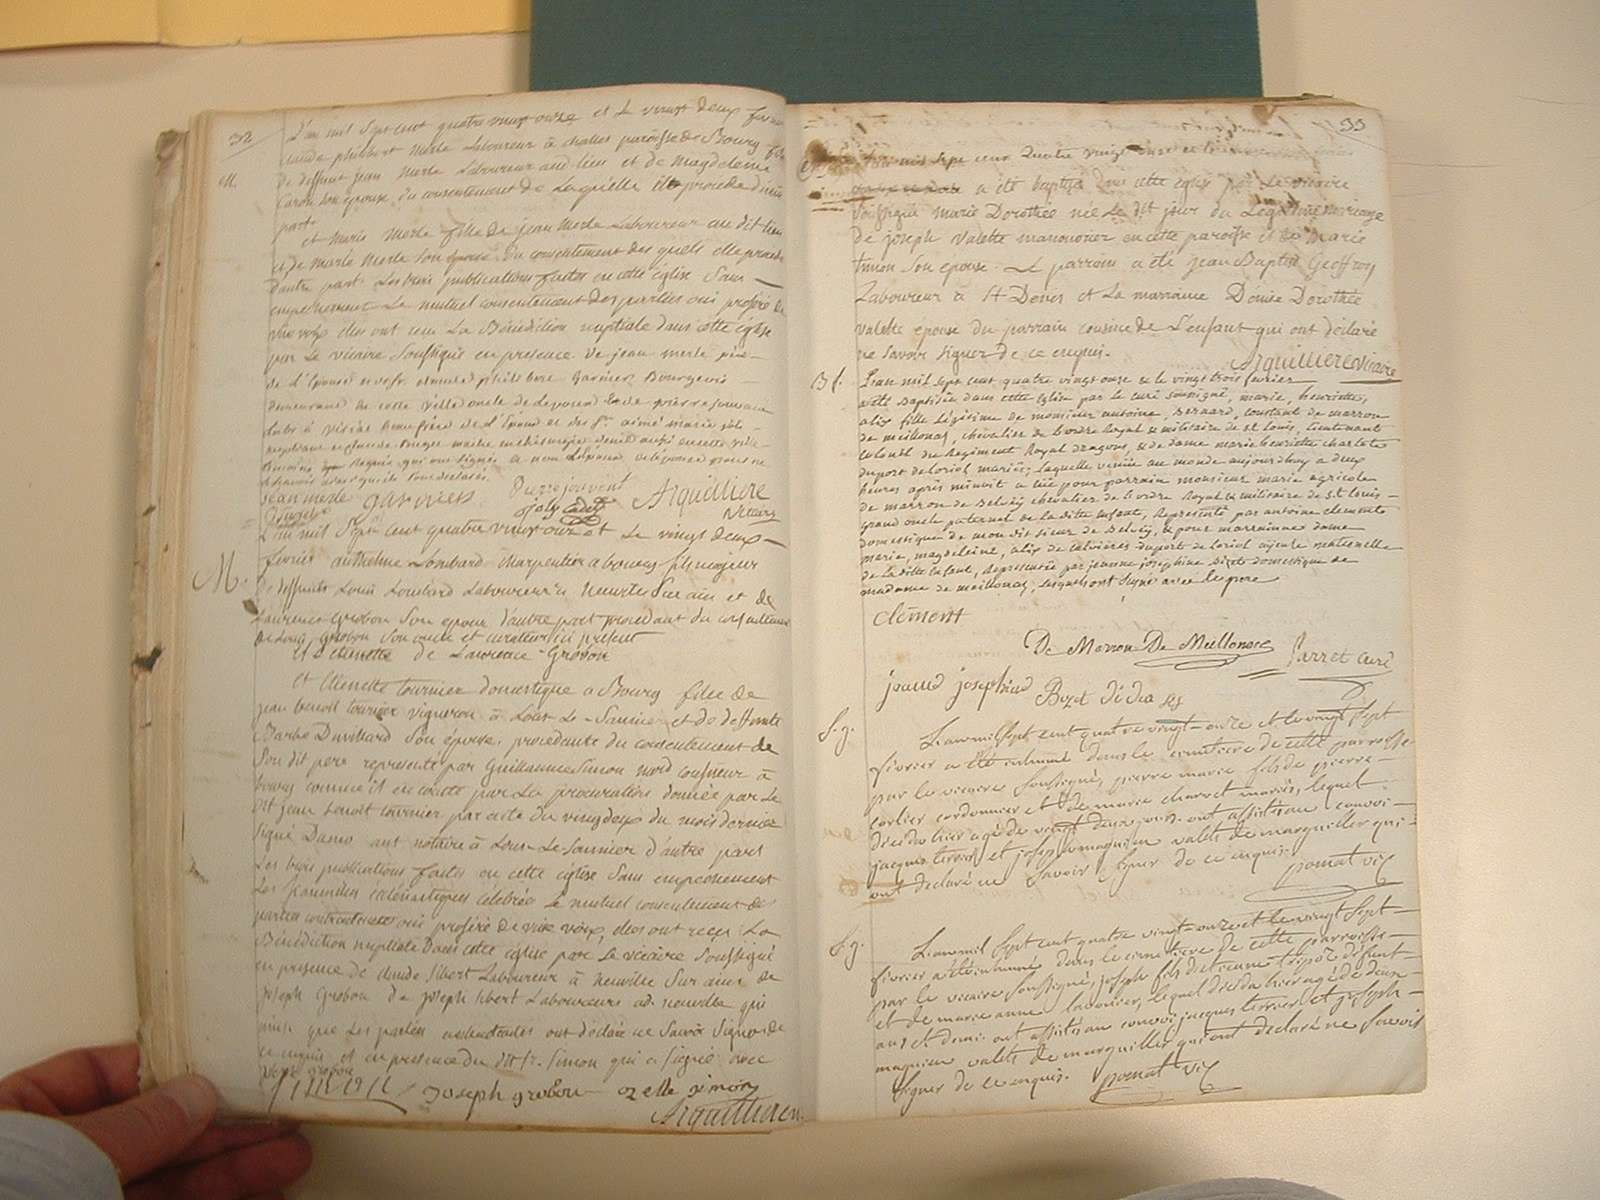 32
L'an mil sept cent quatre vingt onze et le vingt deux
claude philibert merle Laboureur à challes paroisse de Bourg fils
M.
de deffunt jean merle Laboureur aud. lieu et de magdeleine
son épouse, du consentement de Laquelle il procede d'une
part
et marie merle fille de jean merle Laboureur au dit lieu
et de marie merle son épouse du consentement des quels elle procede
d'autre part. Les trois publications faites en cette église sans
empechement Le mutuel consentement des parties oui proferé de
vive voix elles ont reçu La Bénédiction nuptiale dans cette église
par Le vicaire soussigné en presence de jean merle père
de L'épouse garnier Bourgeois
demeurant en cette ville oncle de de pierre jouvent
beaufrère de L'époux et des Sr. aimé marie
maitre aussi en cette ville
temoins requis qui ont signés et non L'épouse
jean merle garnier Pierre jouvent
joly cadet Arquilliere
Vicaire
L'an mil sept cent quatre vingt onze et le vingt deux
M.
février anthelme Lombard charpentier a bourg fils majeur
de deffunts Louis Lombard Laboureur à neuville sur ain et de
Laurence grobon son epouse d'autre part procedant du consentement
de Louis grobon son oncle et curateur ici présent
et de Laurence Grobon
et Clenette tournier domestique a Bourg fille de
jean benoit tournier vigneron à Lons-Le-Saunier et de deffunte
Barbe Duvillard son épouse, procedante du consentement de
son dit pere representé par Guillaume Simon nard à
bourg comme il en conste par La procuration donnée par Le
dit jean benoit tournier par acte du vingt deux du mois dernier
signé Damo notaire à Lons-Le-Saunier d'autre part
Les trois publications faites en cette église sans empechement
Les fiancailles célébrées Le mutuel consentement des
parties contractantes oui proferé de vive voix, elles ont reçu La
Bénédiction nuptiale dans cette église par Le vicaire soussigné
en presence de claude Sibert Laboureur à neuville sur ain de
Joseph Grobon de joseph Sibert Laboureurs à neuville qui
ainsi que Les parties contractantes ont déclaré ne savoir signer de
ce enquis et en presence du dit Sr. Simon qui a signé avec
grobon
joseph grobon
Arquilliere
33
mil sept cent Quatre vingt onze et le
a été baptisé dans cette église par Le vicaire
soussigné marie Dorothée née Le dit jour du Légitime mariage
de joseph valette manouvrier en cette paroisse et de marie
timon son épouse. Le parrain a été jean Baptiste Geoffroy
Laboureur à St Denis et La marraine Denise Dorothée
valette épouse du parrain cousine de L'enfant qui ont déclaré
ne savoir signer de ce enquis.
Arquilliere Vicaire
B f.
L'an mil sept cent quatre vingt onze & le vingt trois fevrier
a été Baptisée dans cette église par le curé soussigné, marie, henriette,
alix fille Légitime de monsieur antoine, bernard, constant de marron
de meillonas, chevalier de l'ordre Royal & militaire de st. Louis, Lieutenant
colonel du Regiment Royal dragons, & de dame marie henriette charlotte
duport de loriol mariés; laquelle venüe au monde aujourdhuy a deux
heures après minuit a eu pour parrain monsieur marie agricole
de marron de Belvey chevalier de l'ordre Royal & militaire de s.t. Louis
grand oncle paternel de la ditte enfant, Representé par antoine clement
domestique de mon dit sieur de Belvey, & pour marrainne dame
marie, magdeleine, alix de calvieres duport de loriol ayeule maternelle
de la ditte enfant, Representée par jeanne josephine Bizet domestique de
madame de meillonas, lesquels ont signé avec le pere
clement
De Marron De Meillonas
jeanne josephine
Bizet
Parret curé
S. g.
L'an mil sept cent quatre vingt-onze et le vingt sept
février a été inhumé dans le cimetiere de cette paroisse
par le vicaire soussigné, pierre marie fils de pierre
carlier cordonnier et de marie charret mariés, lequel
décéda hier agé de vingt deux mois. ont assisté au convoi
jacques terrier et joseph magnien valets de marguiller qui
ont declaré ne savoir signer de ce enquis.
pomat vic
S. g.
L'an mil sept cent quatre vingt-onze et le vingt sept
février a été inhumé dans le cimetiere de cette paroisse
par le vicaire soussigné, joseph fils d'etienne tripoz défunt
et de marie anne lavorier, lequel décéda hier agé de deux
ans et demi. ont assisté au convoi jacques terrier et joseph
magnien valets de marguiller qui ont declaré ne savoir
signer de ce enquis.
pomat vic